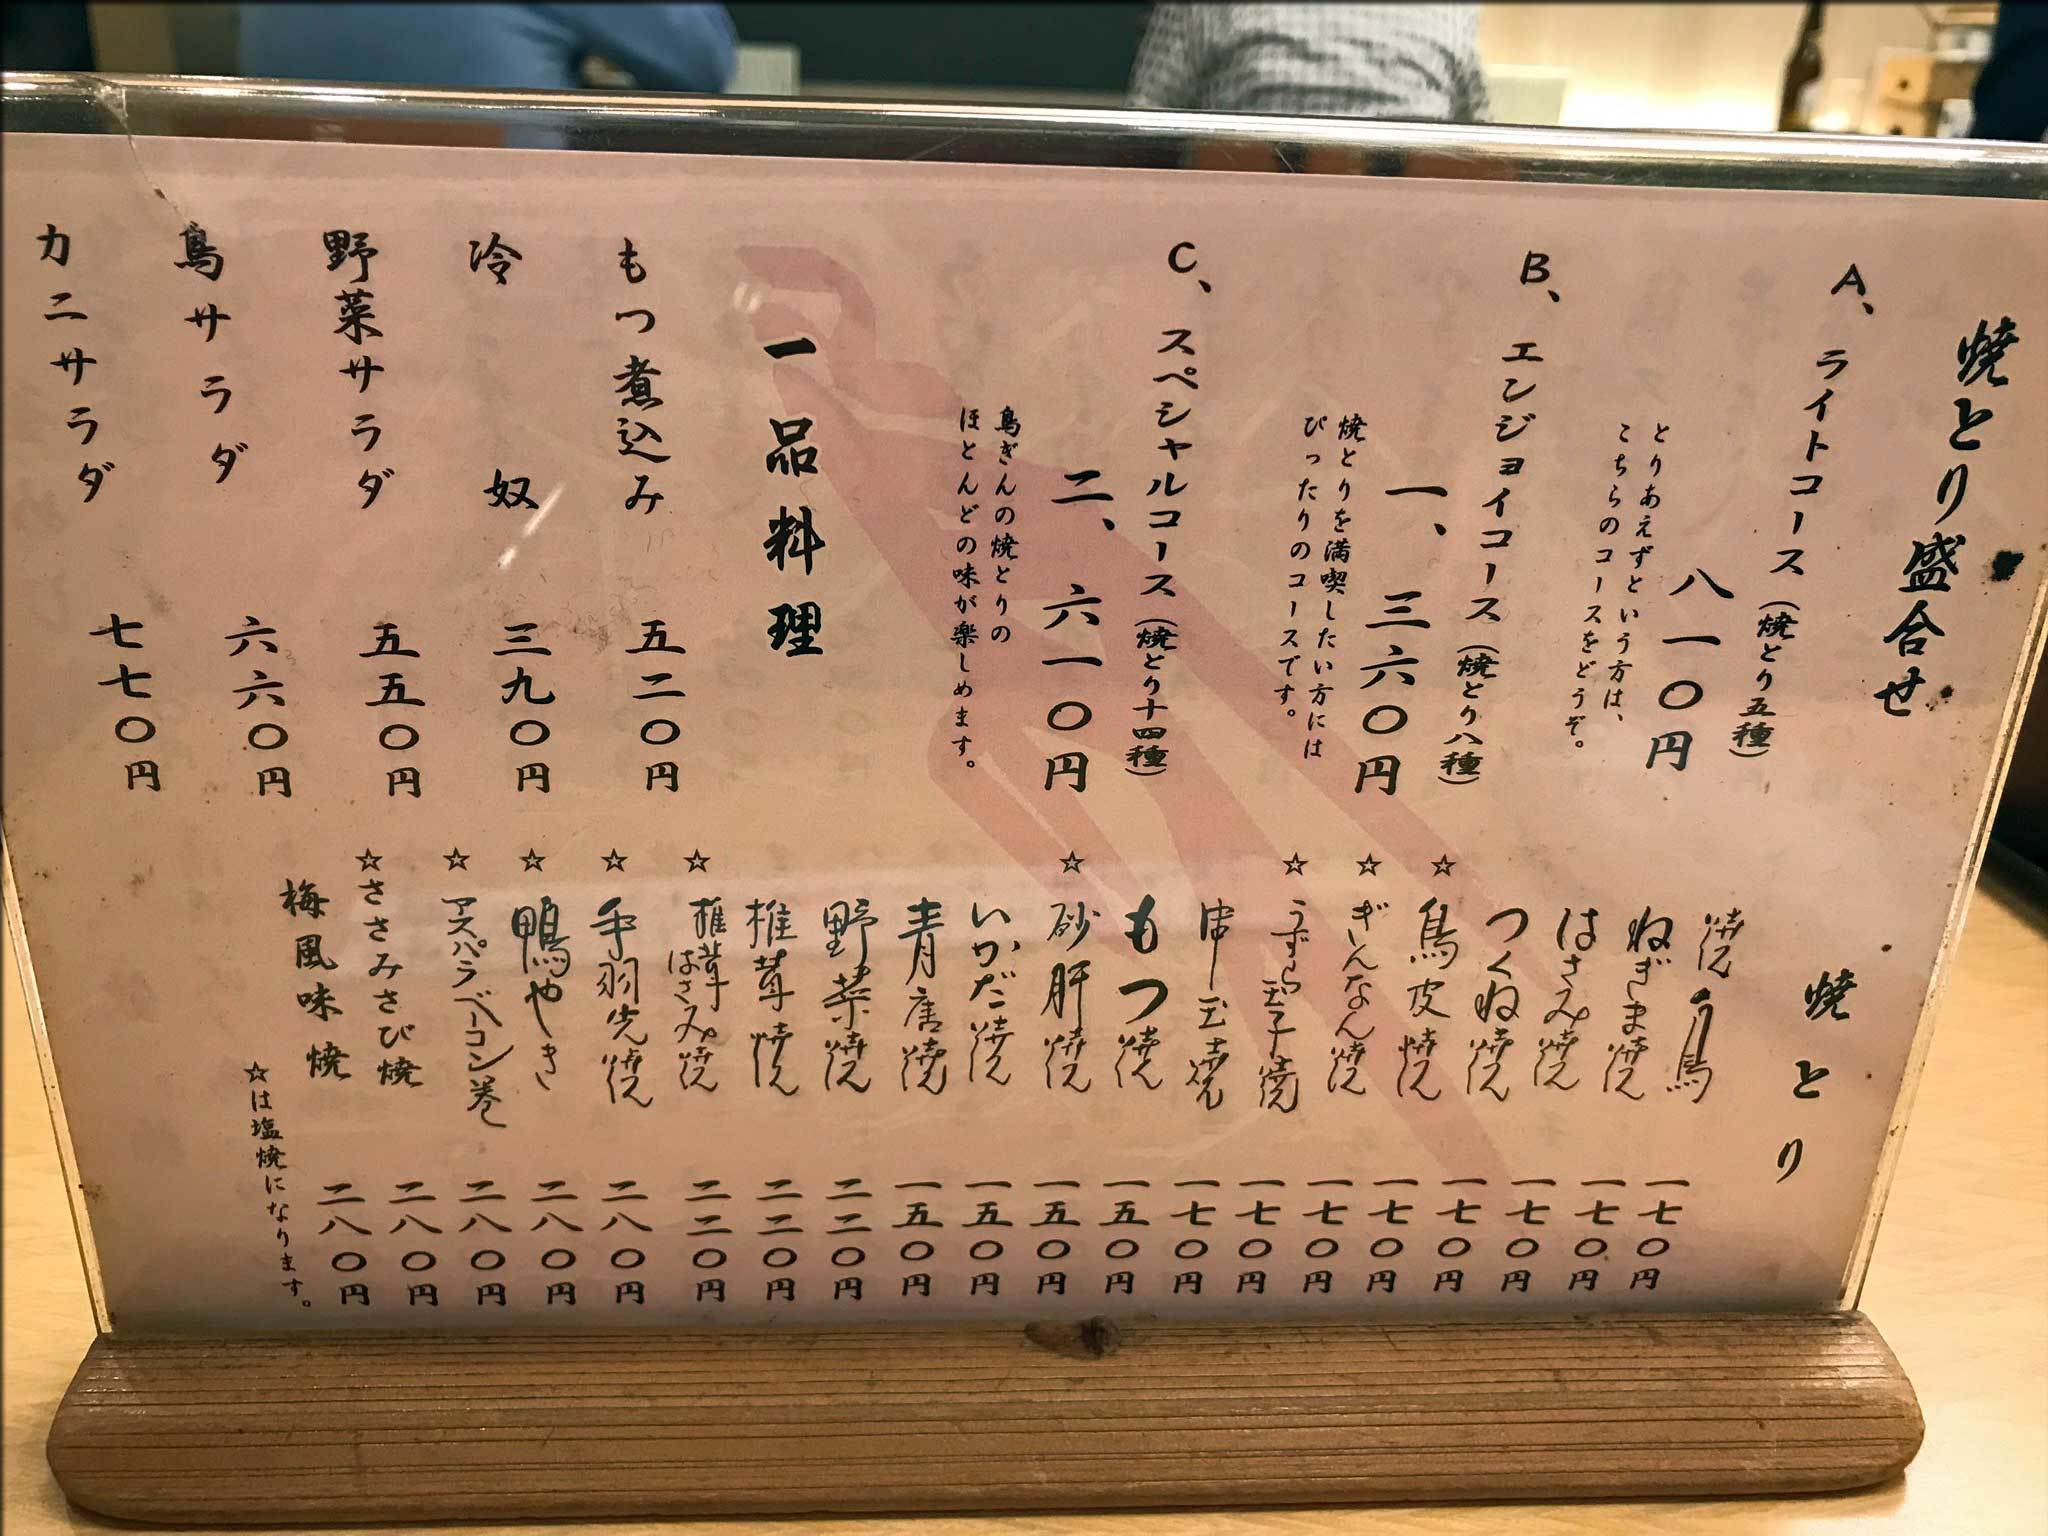 焼とり盛合せ
A、ライトコース（焼とり五種）
八一〇円
とりあえずという方は、
こちらのコースをどうぞ。
B、エンジョイコース（焼とり八種）
一、三六〇円
焼とりを満喫したい方には
ぴったりのコースです。
C、スペシャルコース（焼とり十四種）
二、六一〇円
鳥ぎんの焼とりの
ほとんどの味が楽しめます。
一品料理
もつ煮込み 五二〇円
冷奴 三九〇円
野菜サラダ 五五〇円
鳥サラダ 六六〇円
カニサラダ 七七〇円
焼とり
焼う鳥 一七〇円
ねぎま焼 一七〇円
はさみ焼 一七〇円
つくね焼 一七〇円
☆鳥皮焼 一七〇円
☆ぎんなん焼 一七〇円
☆うずら玉子焼 一七〇円
串玉焼 一七〇円
もつ焼 一五〇円
☆砂肝焼 一五〇円
いかだ焼 一五〇円
青唐焼 一五〇円
野菜焼 二二〇円
椎茸焼 二二〇円
☆椎茸はさみ焼 二二〇円
☆手羽先焼 二八〇円
☆鴨やき 二八〇円
☆アスパラベーコン巻 二八〇円
☆ささみさび焼 二八〇円
梅風味焼 二八〇円
☆は塩焼になります。